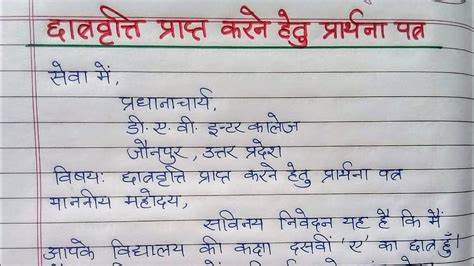 छात्रवृत्ति प्राप्त करने हेतु प्रार्थना पत्र
सेवा में,
प्रधानाचार्य,
डी. ए. वी. इन्टर कालेज
जौनपुर, उत्तर प्रदेश
विषय: छात्रवृत्ति प्राप्त करने हेतु प्रार्थना पत्र
माननीय महोदय,
सविनय निवेदन यह है कि मैं
आपके विद्यालय की कक्षा दसवीं 'ए' का छात्र हूँ।